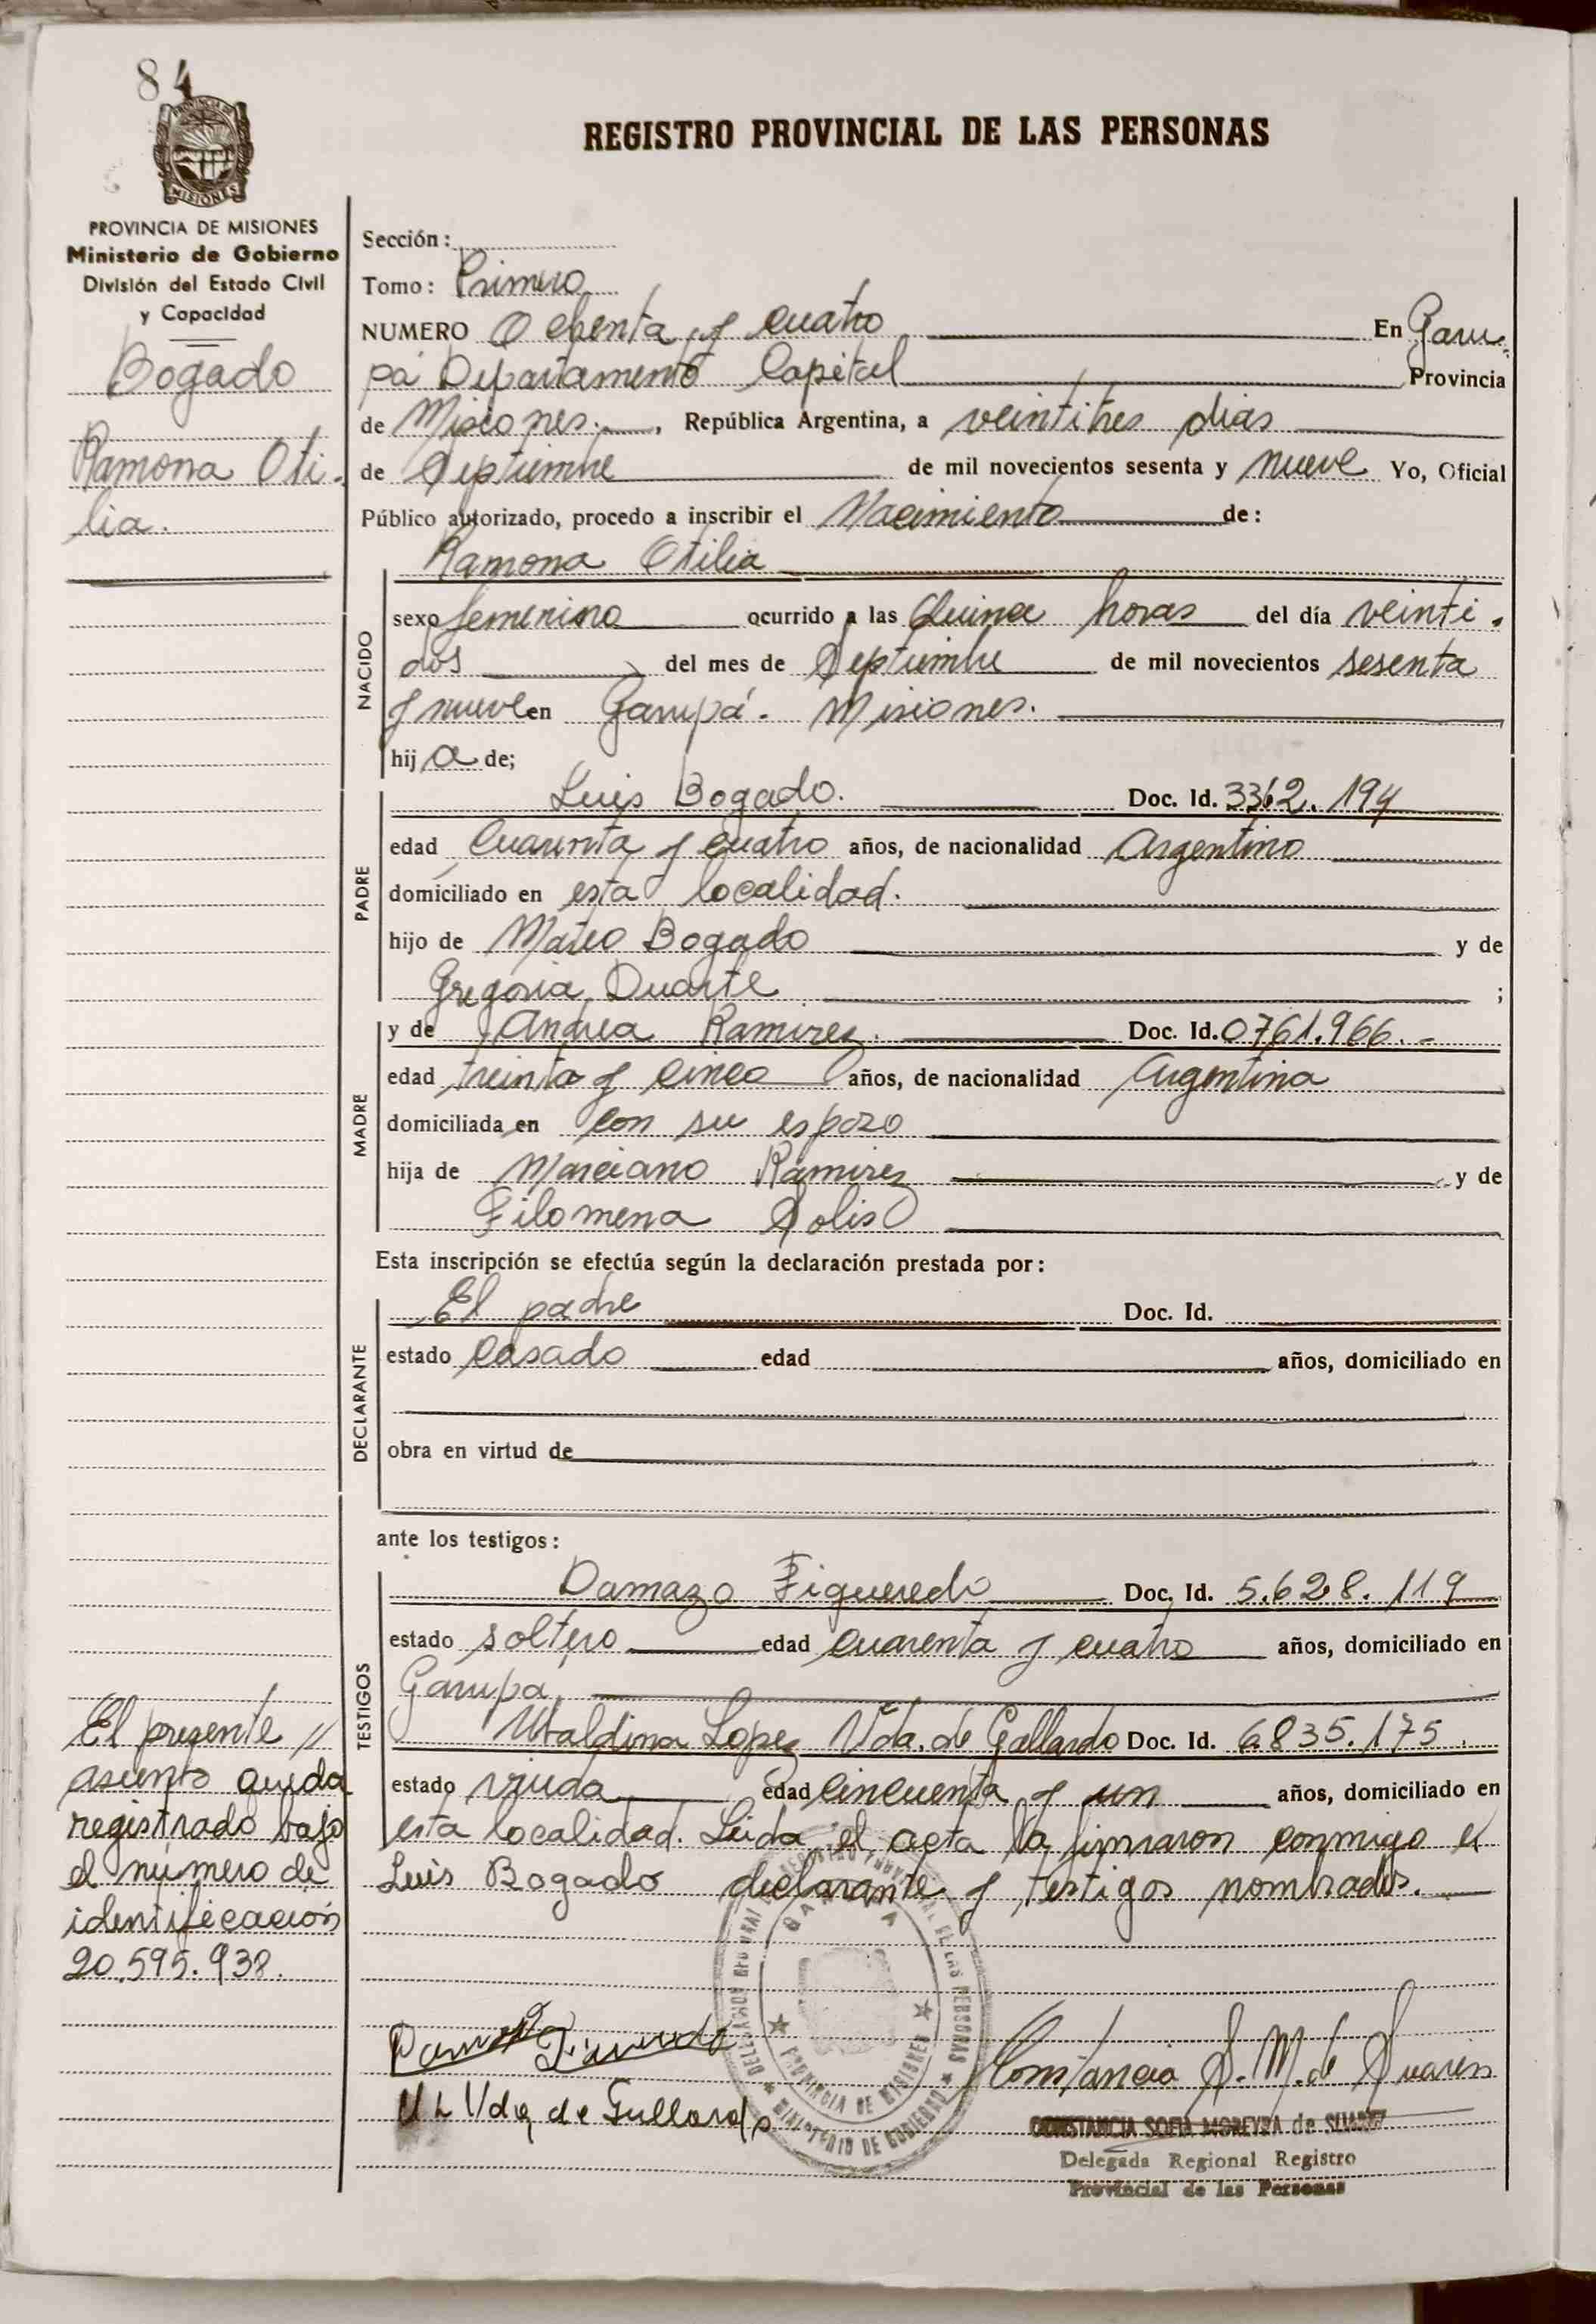 84
PROVINCIA DE MISIONES
Ministerio de Gobierno
División del Estado Civil
y Capacidad
Bogado
Ramona Oti-
lia.
REGISTRO PROVINCIAL DE LAS PERSONAS
Sección:
Tomo: Primero
NUMERO Ochenta y cuatro En Garu-
pá Departamento Capital Provincia
de Misiones. , República Argentina, a veintitres dias
de Septiembre de mil novecientos sesenta y nueve Yo, Oficial
Público autorizado, procedo a inscribir el Nacimiento de:
Ramona Otilia
NACIDO
sexo femenino ocurrido a las Quince horas del día veinti-
dos del mes de Septiembre de mil novecientos sesenta
y nueve en Garupá. Misiones.
hij a de;
PADRE
Luis Bogado. Doc. Id. 3362.194
edad Cuarenta y cuatro años, de nacionalidad Argentino
domiciliado en esta localidad.
hijo de Mateo Bogado y de
Gregoria Duarte ;
MADRE
y de Andrea Ramirez. Doc. Id. 0761.966.-
edad treinta y cinco años, de nacionalidad Argentina
domiciliada en con su espozo
hija de Marciano Ramirez y de
Filomena Solis
Esta inscripción se efectúa según la declaración prestada por:
DECLARANTE
El padre Doc. Id.
estado Casado edad años, domiciliado en
obra en virtud de
ante los testigos:
TESTIGOS
Damazo Figueredo Doc. Id. 5.628.119
estado soltero edad cuarenta y cuatro años, domiciliado en
Garupa
Ubaldina Lopez Vda. de Gallardo Doc. Id. 6835.175.
estado viuda edad cincuenta y un años, domiciliado en
esta localidad. Leida el acta la firmaron conmigo el
Luis Bogado declarante y testigos nombrados.
El presente //
asiento queda
registrado bajo
el número de
identificación
20.595.938.
U L Vda de Gullardo
Constancia S. M. de Suarez
CONSTANCIA SOFIA MOREYRA de SUAREZ
Delegada Regional Registro
Provincial de las Personas
GARUPA
PROVINCIA DE MISIONES
MINISTERIO DE GOBIERNO